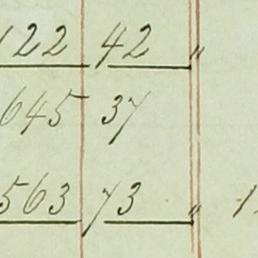 122 42 "
645 37
563 73 " 1